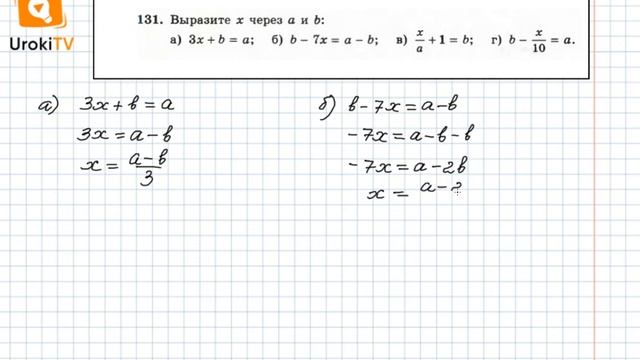 UrokiTV
131. Выразите x через a и b:
а) 3x + b = a; б) b − 7x = a − b; в) x/a + 1 = b; г) b − x/10 = a.
а) 3x + b = a
3x = a − b
x = (a − b)/3
б) b − 7x = a − b
− 7x = a − b − b
− 7x = a − 2b
x = a − 2